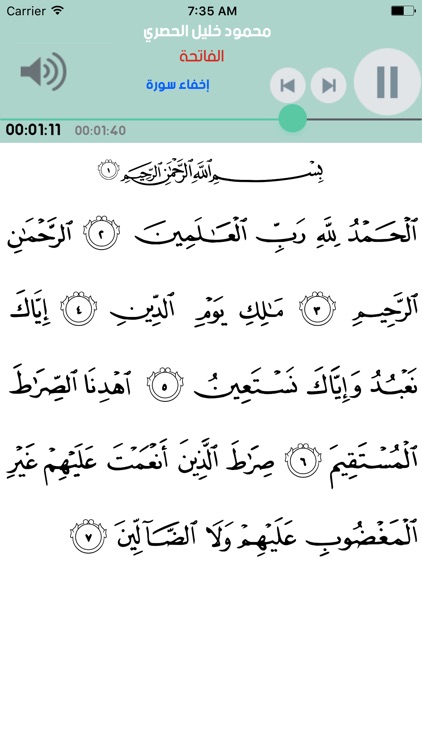 Carrier 7:35 AM
محمود خليل الحصري
الفاتحة
إخفاء سورة
00:01:11 00:01:40
بِسْمِ ٱللَّهِ ٱلرَّحْمَٰنِ ٱلرَّحِيمِ ١
ٱلْحَمْدُ لِلَّهِ رَبِّ ٱلْعَٰلَمِينَ ٢ ٱلرَّحْمَٰنِ
ٱلرَّحِيمِ ٣ مَٰلِكِ يَوْمِ ٱلدِّينِ ٤ إِيَّاكَ
نَعْبُدُ وَإِيَّاكَ نَسْتَعِينُ ٥ ٱهْدِنَا ٱلصِّرَٰطَ
ٱلْمُسْتَقِيمَ ٦ صِرَٰطَ ٱلَّذِينَ أَنْعَمْتَ عَلَيْهِمْ غَيْرِ
ٱلْمَغْضُوبِ عَلَيْهِمْ وَلَا ٱلضَّآلِّينَ ٧